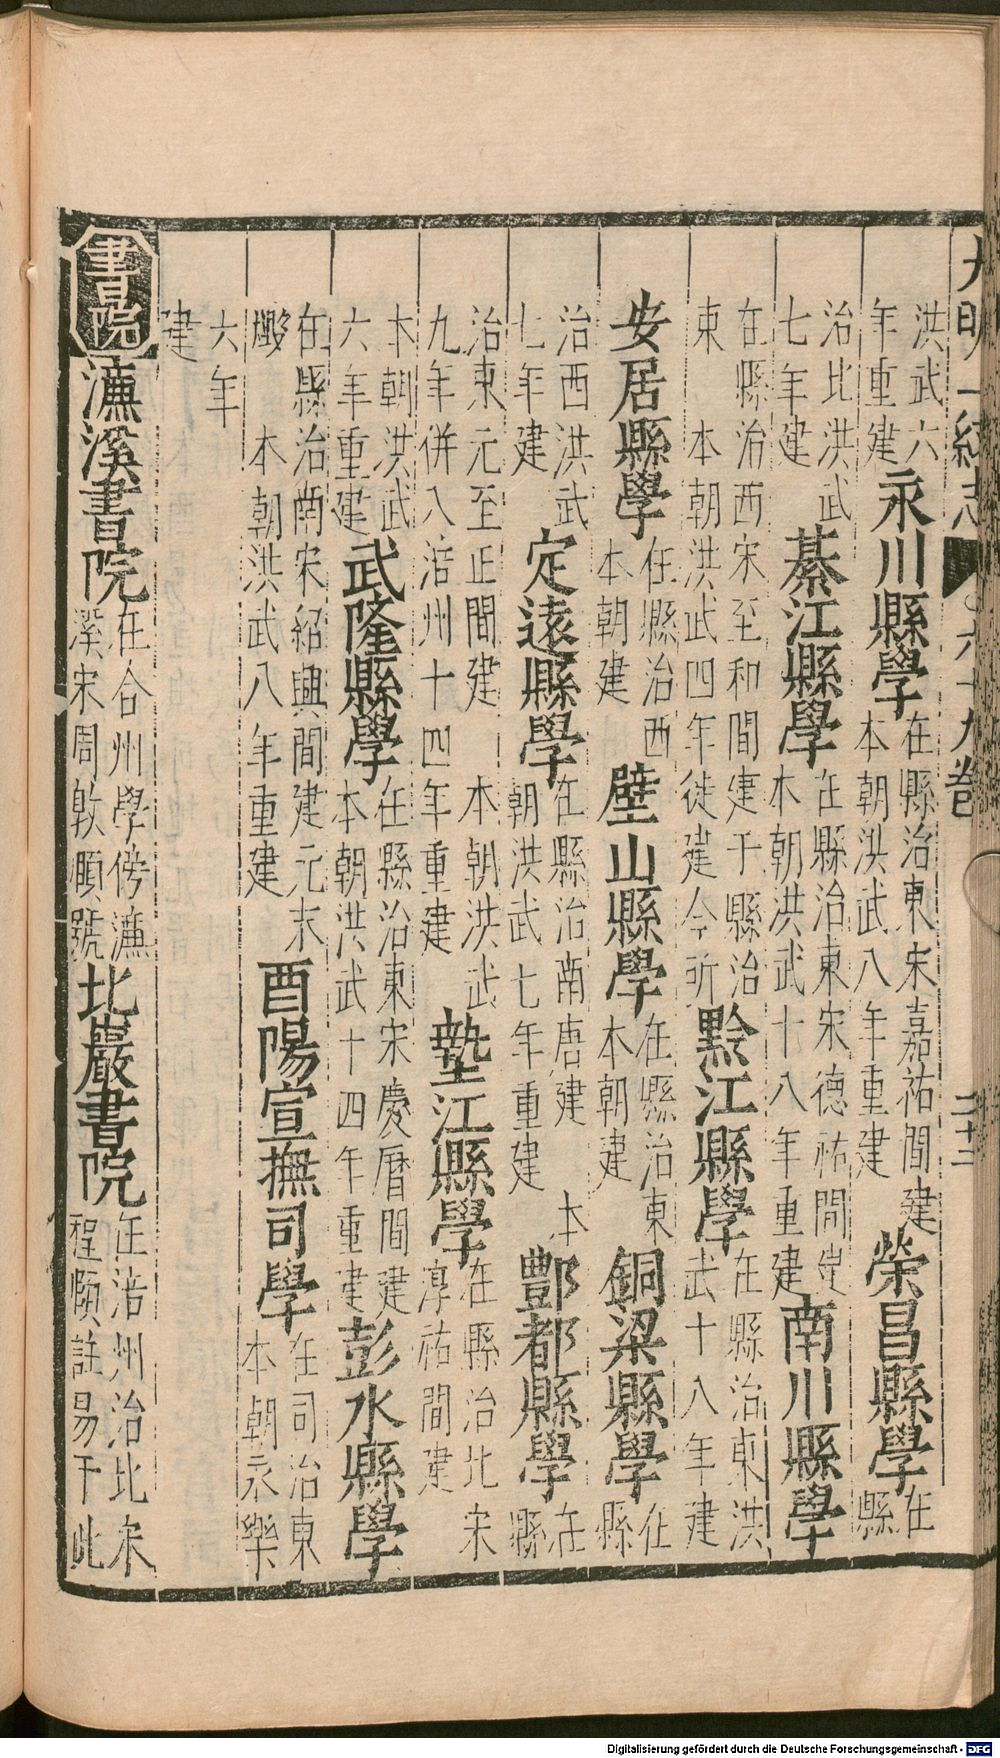 大明一統志 六十九卷 二十三
洪武六年重建永川縣學在縣治東宋嘉祐間建本朝洪武八年重建榮昌縣學在縣
治北洪武七年建綦江縣學在縣治東宋德祐間建本朝洪武十八年重建南川縣學
在縣治西宋至和間建于縣治東本朝洪武四年徙建今所黔江縣學在縣治東洪武十八年建
安居縣學在縣治西本朝建壁山縣學在縣治東本朝建銅梁縣學在縣
治西洪武七年建定遠縣學在縣治南唐建本朝洪武七年重建酆都縣學在縣
治東元至正間建本朝洪武九年併入涪州十四年重建墊江縣學在縣治北宋淳祐間建
本朝洪武六年重建武隆縣學在縣治東宋慶曆間建本朝洪武十四年重建彭水縣學
在縣治南宋紹興間建元末燬本朝洪武八年重建酉陽宣撫司學在司治東本朝永樂
六年建
書院濂溪書院在合州學傍濂溪宋周敦頤號北巖書院在涪州治北宋程頤註易于此
Digitalisierung gefördert durch die Deutsche Forschungsgemeinschaft - DFG